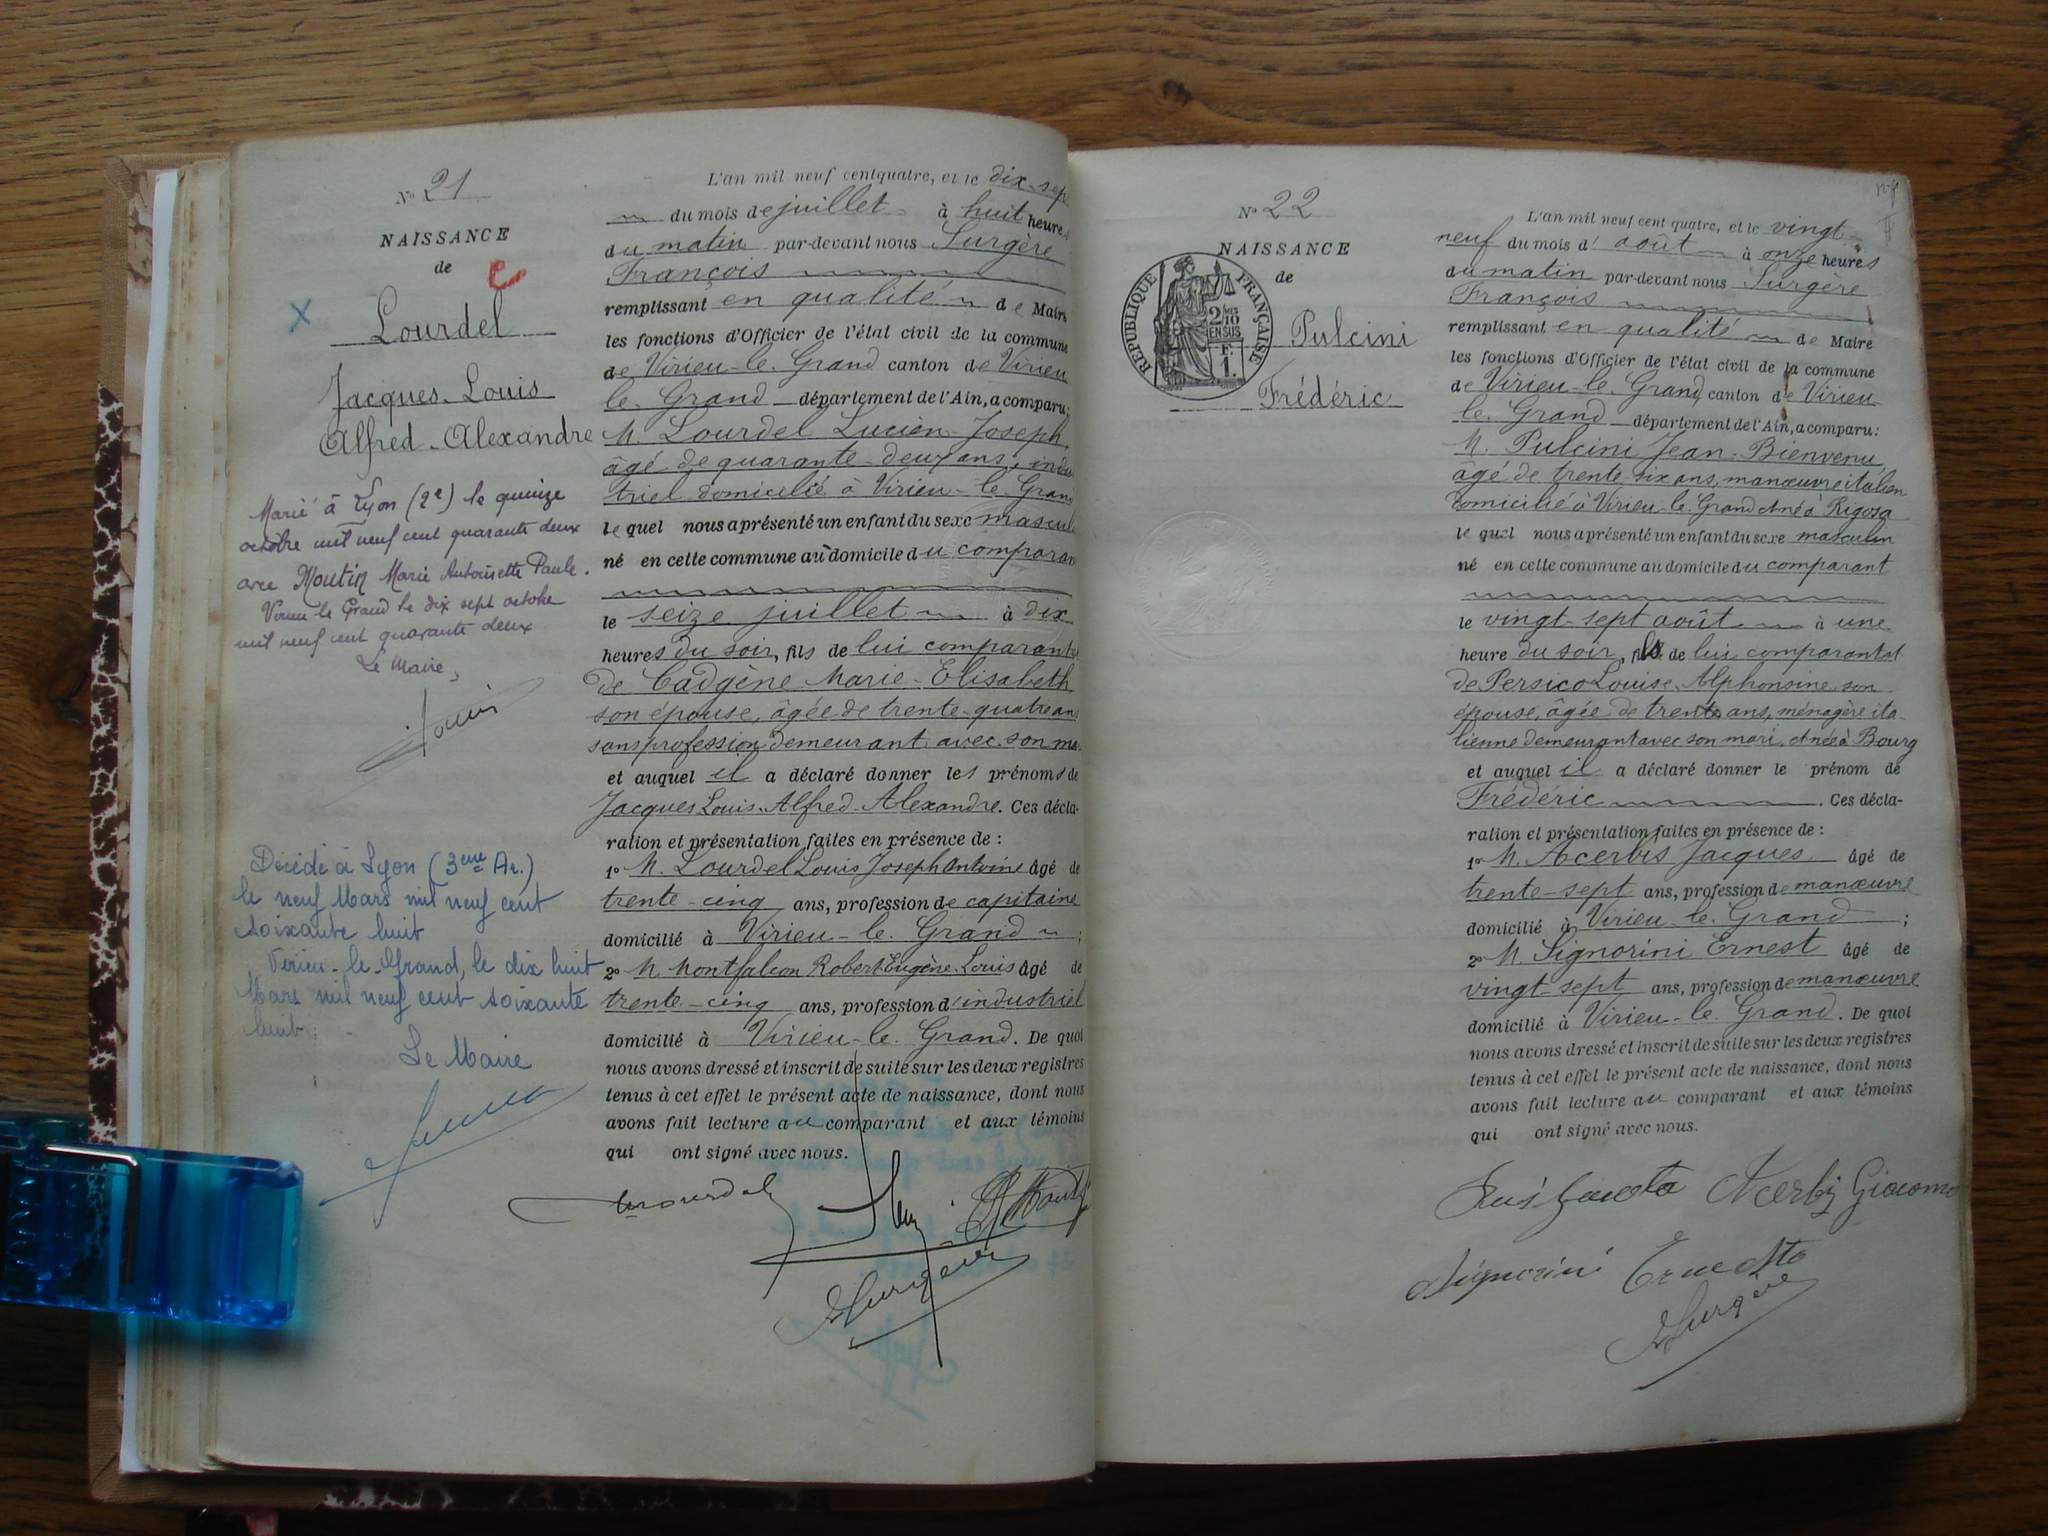 No 21
NAISSANCE
de
Lourdel
Jacques-Louis
Alfred-Alexandre
Marié à Lyon (2e) le quinze
octobre mil neuf cent quarante deux
avec Moutin Marie Antoinette Paule.
Virieu le Grand le dix sept octobre
mil neuf cent quarante deux
Le Maire,
Décédé à Lyon (3eme Ar.)
le neuf Mars mil neuf cent
soixante huit
Virieu-le-Grand, le dix huit
Mars mil neuf cent soixante
huit.
Le Maire
L'an mil neuf cent quatre, et le dix-sep
du mois de juillet à huit heures
du matin par-devant nous Surgère
François
remplissant en qualité de Maire
les fonctions d'Officier de l'état civil de la commune
de Virieu-le-Grand canton de Virieu
le Grand département de l'Ain, a comparu:
M. Lourdel Lucien-Joseph,
âgé de quarante-deux ans, indus
triel domicilié à Virieu-le-Gran
le quel nous a présenté un enfant du sexe mascul
né en cette commune au domicile du comparan
le seize juillet à dix
heures du soir, fils de lui comparant et
de Cadgène Marie-Elisabeth
son épouse, âgée de trente-quatre ans
sans profession demeurant avec son ma
et auquel il a déclaré donner les prénoms de
Jacques Louis-Alfred-Alexandre. Ces décla-
ration et présentation faites en présence de :
1o M. Lourdel Louis Joseph Antoine âgé de
trente-cinq ans, profession de capitaine
domicilié à Virieu-le-Grand ;
2o M. Montfalcon Robert Eugène Louis âgé de
trente-cinq ans, profession d'industriel
domicilié à Virieu-le-Grand. De quoi
nous avons dressé et inscrit de suite sur les deux registres
tenus à cet effet le présent acte de naissance, dont nous
avons fait lecture au comparant et aux témoins
qui ont signé avec nous.
Surgère
No 22
NAISSANCE
de
RÉPUBLIQUE FRANÇAISE
2/10
EN SUS
F.
1.
Pulcini
Frédéric
L'an mil neuf cent quatre, et le vingt-
neuf du mois d'août à onze heures
du matin par-devant nous Surgère
François
remplissant en qualité de Maire
les fonctions d'Officier de l'état civil de la commune
de Virieu-le-Grand canton de Virieu
le Grand département de l'Ain, a comparu:
M. Pulcini Jean-Bienvenu
âgé de trente-six ans, manœuvre italien
domicilié à Virieu-le-Grand et né à Rigosa
le quel nous a présenté un enfant du sexe masculin
né en cette commune au domicile du comparant
le vingt-sept août à une
heure du soir, fils de lui comparant et
de Persico Louise-Alphonsine son
épouse, âgée de trente ans, ménagère ita-
lienne demeurant avec son mari, et née à Bourg
et auquel il a déclaré donner le prénom de
Frédéric. Ces décla-
ration et présentation faites en présence de :
1o M. Acerbis Jacques âgé de
trente-sept ans, profession de manœuvre
domicilié à Virieu-le-Grand ;
2o M. Signorini Ernest âgé de
vingt-sept ans, profession de manœuvre
domicilié à Virieu-le-Grand. De quoi
nous avons dressé et inscrit de suite sur les deux registres
tenus à cet effet le présent acte de naissance, dont nous
avons fait lecture au comparant et aux témoins
qui ont signé avec nous.
Acerbis Giacomo
Signorini Ernesto
Surgère